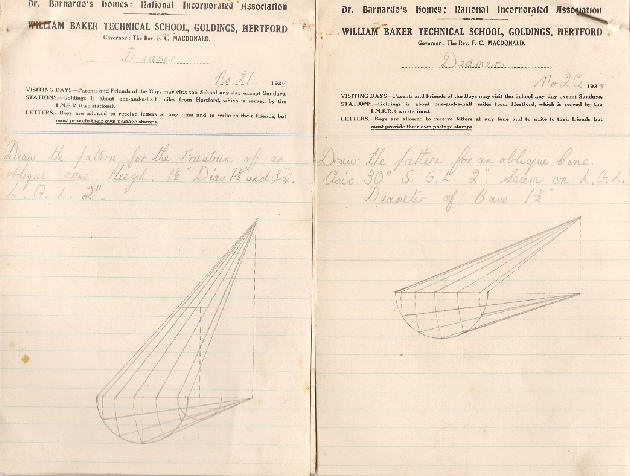 Dr. Barnardo's Homes: National Incorporated Association
WILLIAM BAKER TECHNICAL SCHOOL, GOLDINGS, HERTFORD
Governor: The Rev. F. C. MACDONALD.
No 21 193
VISITING DAYS—Parents and Friends of the Boys may visit the School any day except Sundays.
STATIONS—Goldings is about one-and-a-half miles from Hertford, which is served by the
LETTERS.—Boys are allowed to receive letters at any time and to write to their friends, but
must provide their own postage stamps.
Draw the pattern for the Frustrum of an
oblique cone Heigh. 1½" Dia
L. G. L. 2".
Dr. Barnardo's Homes: National Incorporated Association
WILLIAM BAKER TECHNICAL SCHOOL, GOLDINGS, HERTFORD
Governor: The Rev. F. C. MACDONALD.
No 193
VISITING DAYS—Parents and Friends of the Boys may visit the School any day except Sundays.
STATIONS.—Goldings is about one-and-a-half miles from Hertford, which is served by the
LETTERS.—Boys are allowed to receive letters at any time and to write to their friends, but
must provide their own postage stamps
Draw the pattern for an oblique Cone.
Axis 30° S. G. L. 2". Seam on L. G. L.
Diameter of Base 1½"